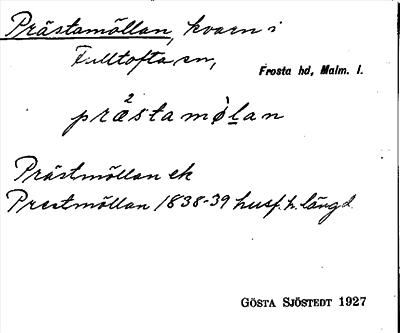 Prästamöllan, kvarn i
Fulltofta sn,
Frosta hd, Malm. l.
2
præstamø̀lan
Prästmöllan ek
Prestmöllan 1838-39 husf. h. längd.
GÖSTA SJÖSTEDT 1927